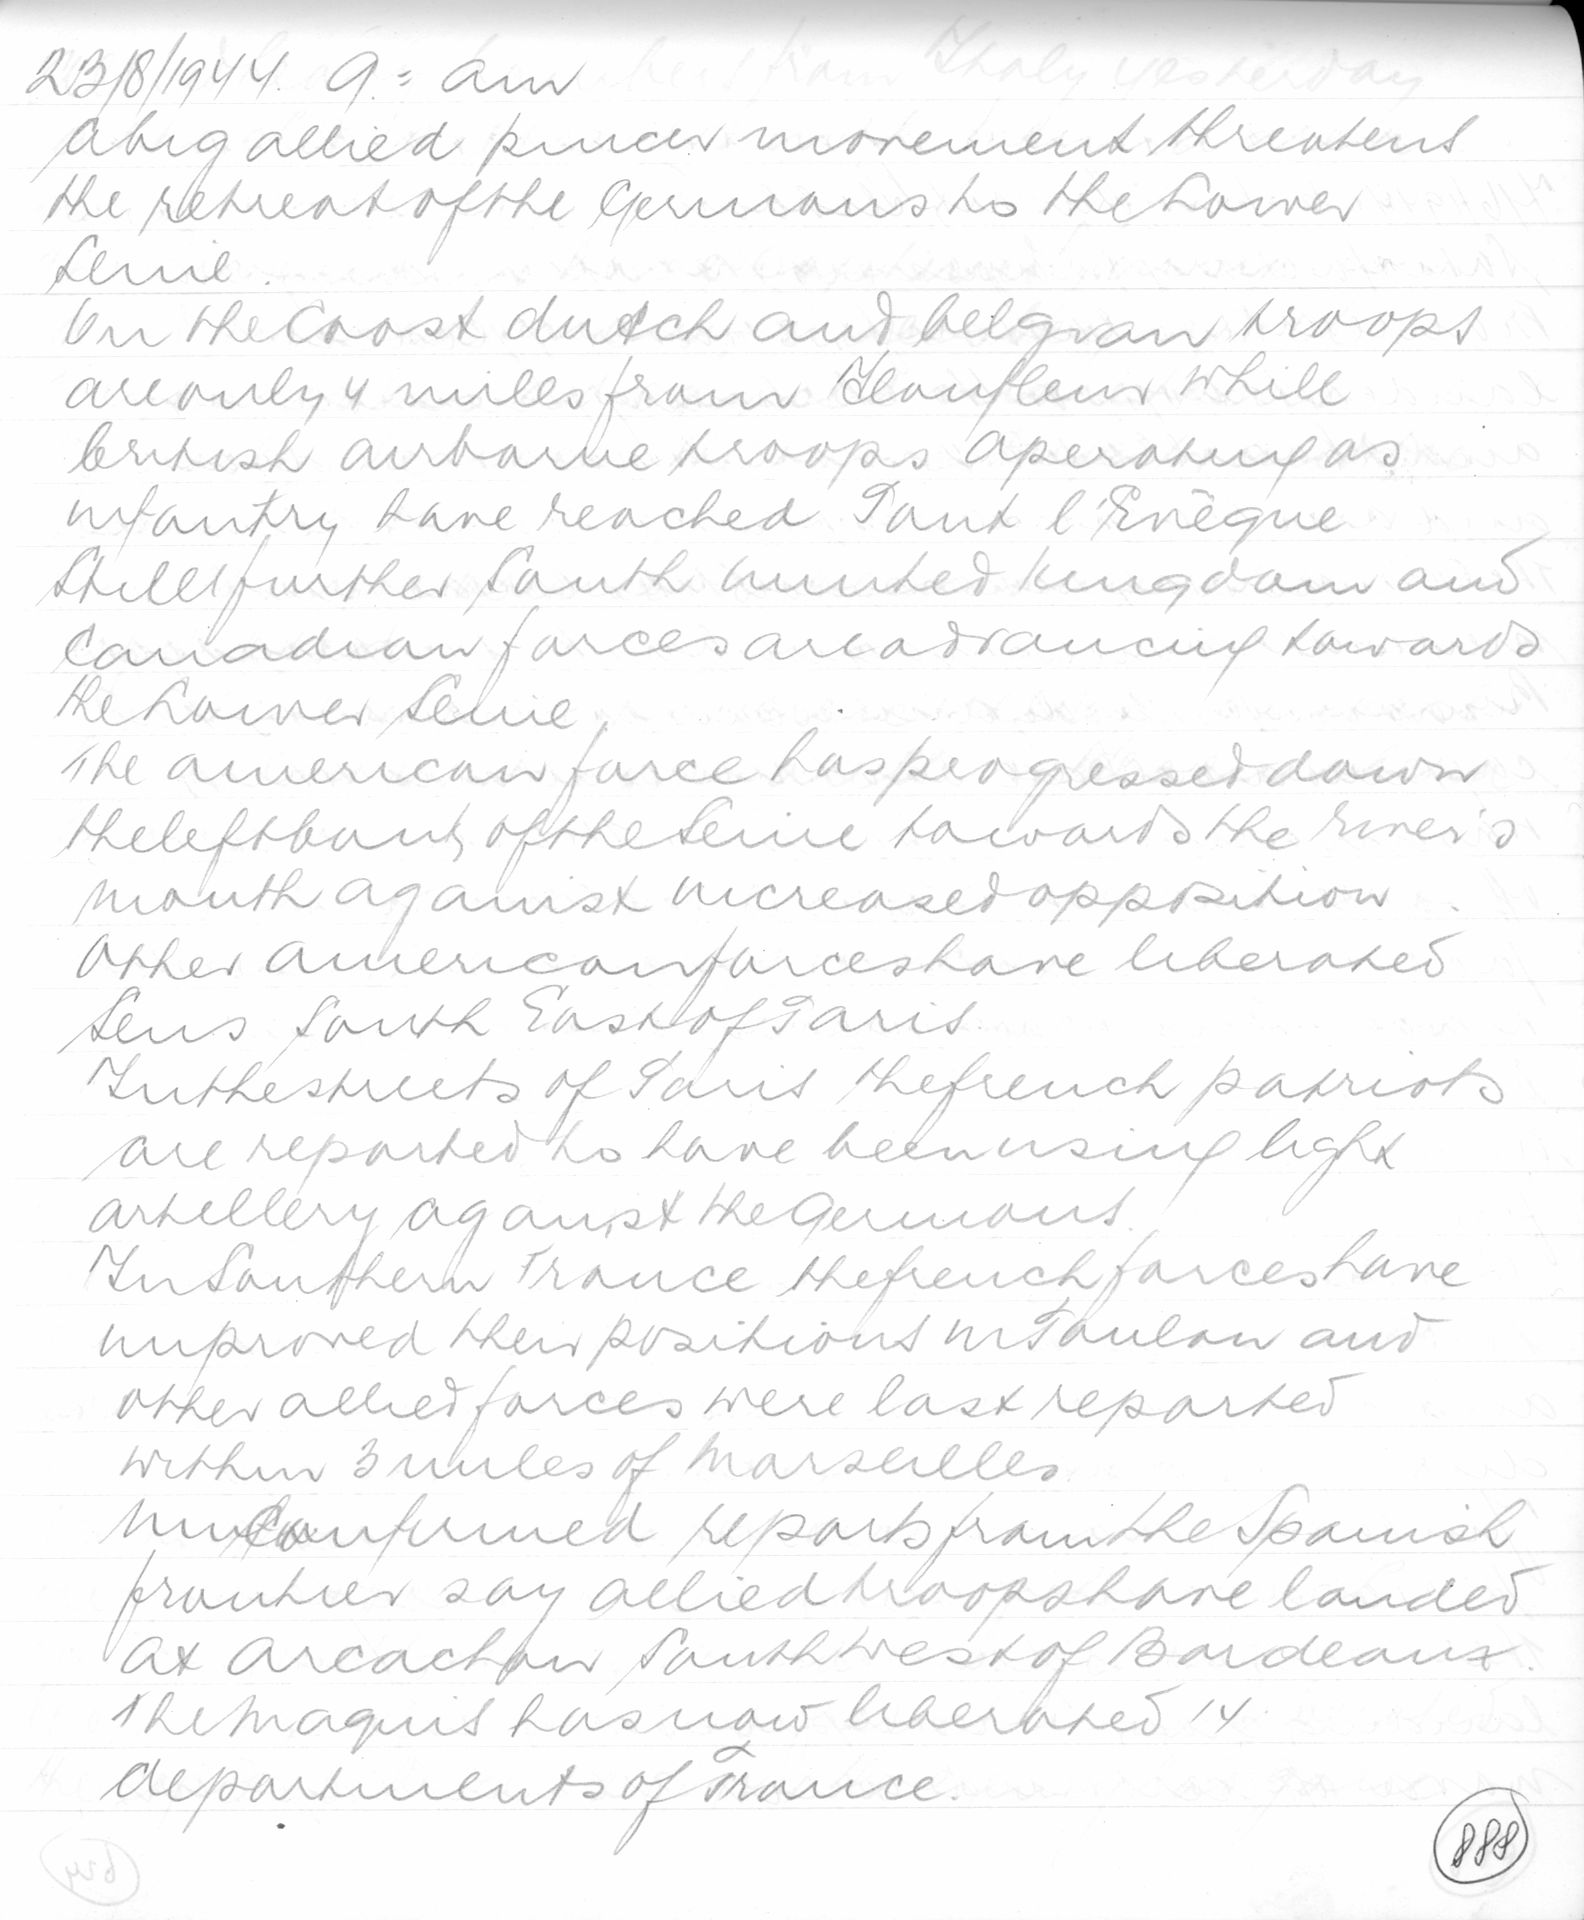 23/8/1944. 9 = am
A big allied pincer movement threatens
the retreat of the Germans to the Lower
Seine.
On the Coast dutch and belgian troops
are only 4 miles from Honfleur whill
british airborne troops operating as
infantry have reached Pont l'Evêque
Still further South united kingdom and
Canadian forces are advancing towards
the Lower Seine.
The american force has progressed down
the left bank of the Seine towards the river's
mouth against increased opposition.
Other american forces have liberated
Sens South East of Paris.
In the streets of Paris the french patriots
are reported to have been using light
artellery against the Germans.
In Southern France the french forces have
improved their positions in Toulon and
other allied forces were last reported
within 3 miles of Marseilles
unconfirmed reports from the Spanish
frontier say allied troops have landed
at Arcachon South West of Bordeaux.
The Maquis has now liberated 14
departments of France.
888